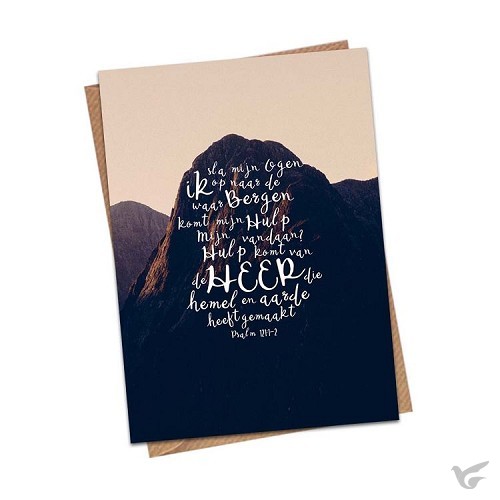 ik sla mijn Ogen
op naar de
waar Bergen
komt mijn Hulp
Mijn vandaan?
Hulp komt van
de HEER die
hemel en aarde
heeft gemaakt
Psalm 121:1-2